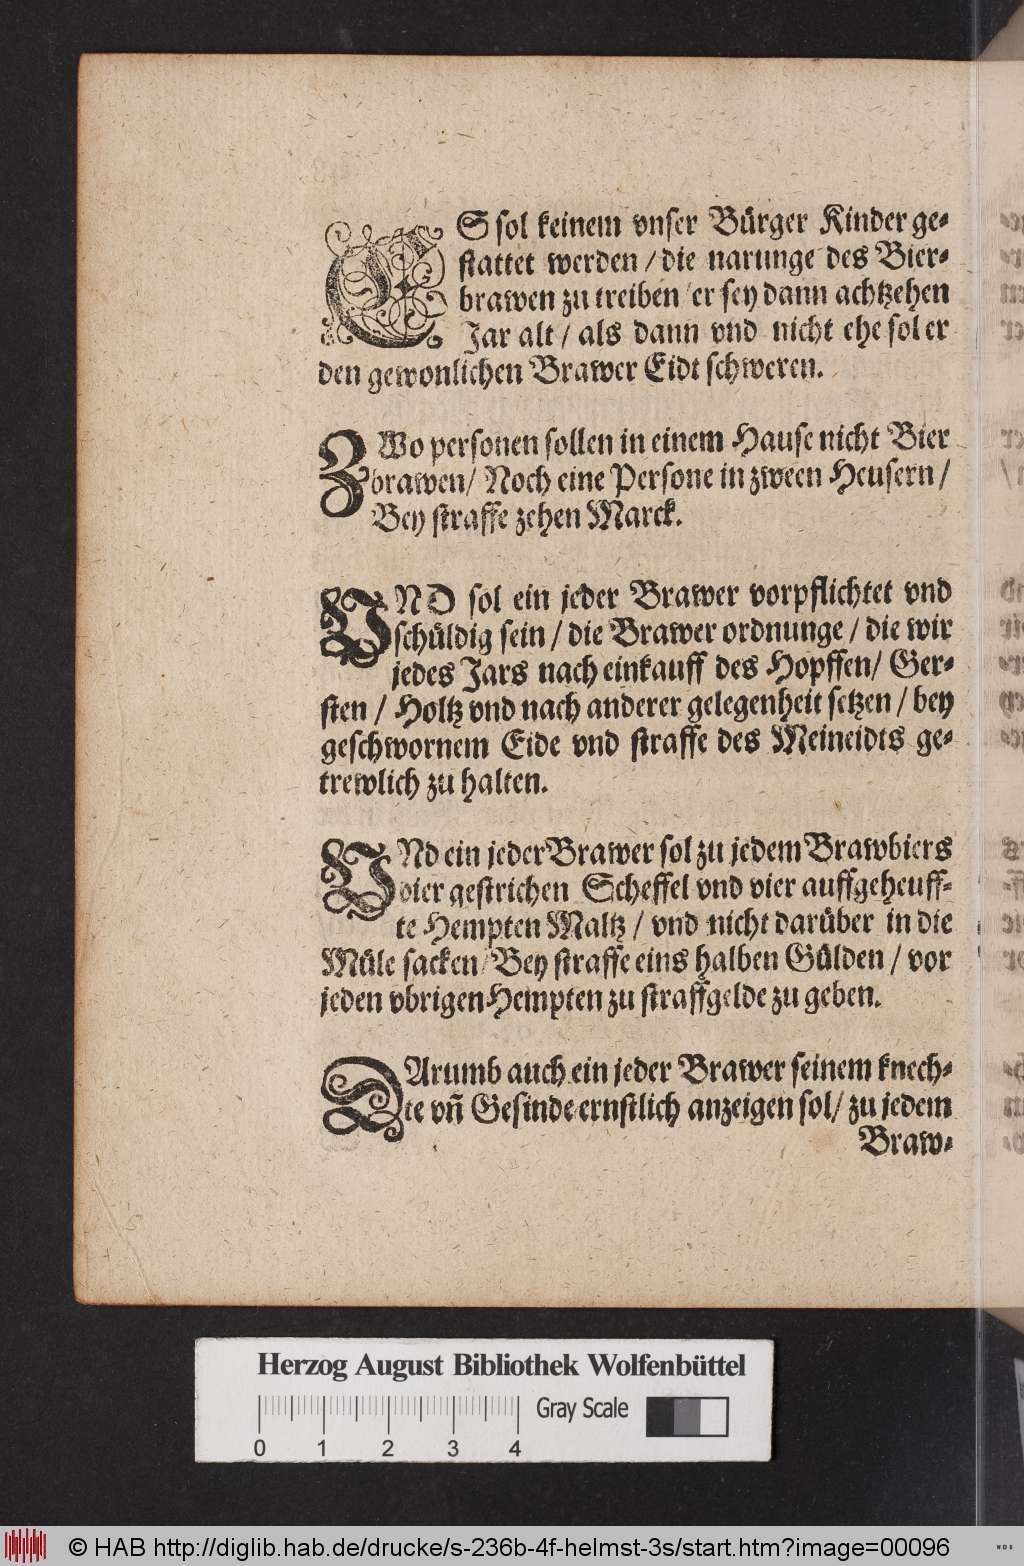 ES sol keinem vnser Bürger Kinder ge-
stattet werden / die narunge des Bier-
brawen zu treiben / er sey dann achtzehen
Jar alt / als dann vnd nicht ehe sol er
den gewonlichen Brawer Eidt schweren.
ZWo personen sollen in einem Hause nicht Bier
brawen / Noch eine Persone in zween Heusern /
Bey straffe zehen Marck.
VND sol ein jeder Brawer vorpflichtet vnd
schüldig sein / die Brawer ordnunge / die wir
jedes Jars nach einkauff des Hopffen / Ger-
sten / Holtz vnd nach anderer gelegenheit setzen / bey
geschwornem Eide vnd straffe des Meineidts ge-
trewlich zu halten.
VNd ein jeder Brawer sol zu jedem Brawbiers
vier gestrichen Scheffel vnd vier auffgeheuff-
te Hempten Maltz / vnd nicht darüber in die
Müle sacken / Bey straffe eins halben Gülden / vor
jeden vbrigen Hempten zu straffgelde zu geben.
DArumb auch ein jeder Brawer seinem knech-
te vñ Gesinde ernstlich anzeigen sol / zu jedem
Braw-
Herzog August Bibliothek Wolfenbüttel
Gray Scale
0 1 2 3 4
© HAB http://diglib.hab.de/drucke/s-236b-4f-helmst-3s/start.htm?image=00096